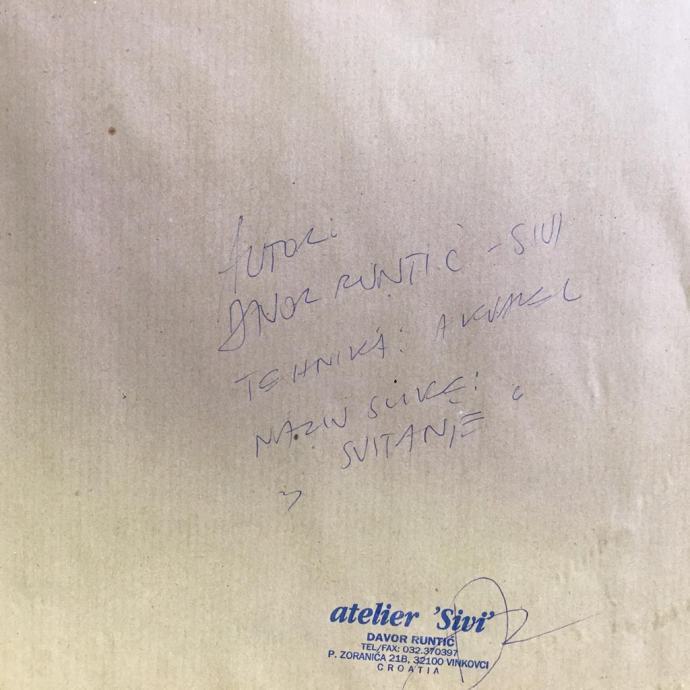 AUTOR:
DAVOR RUNTIĆ - SIVI
TEHNIKA: AKVAREL
NAZIV SLIKE:
„ SVITANJE “
atelier 'Sivi'
DAVOR RUNTIĆ
TEL/FAX: 032.370397
P. ZORANIĆA 21B, 32100 VINKOVCI
CROATIA